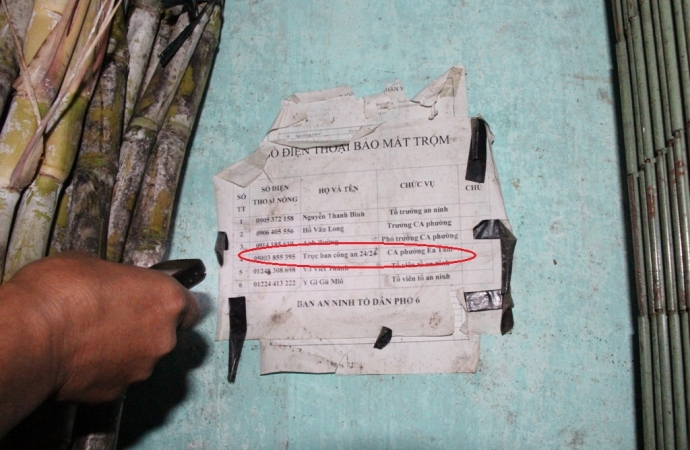 SỐ ĐIỆN THOẠI BÁO MẤT TRỘM
SỐ TT SỐ ĐIỆN THOẠI NÓNG HỌ VÀ TÊN CHỨC VỤ CHÚ
1 0905 372 158 Nguyễn Thanh Bình Tổ trưởng an ninh
2 0906 405 556 Hồ Văn Long Trưởng CA phường
3 Phó trưởng CA phường
05003 855 395 Trực ban công an 24/24 CA phường Ea Tam
5 Tổ viên tổ an ninh
6 01224 413 222 Y Gi Gu Mlô Tổ viên tổ an ninh
BAN AN NINH TỔ DÂN PHỐ 6